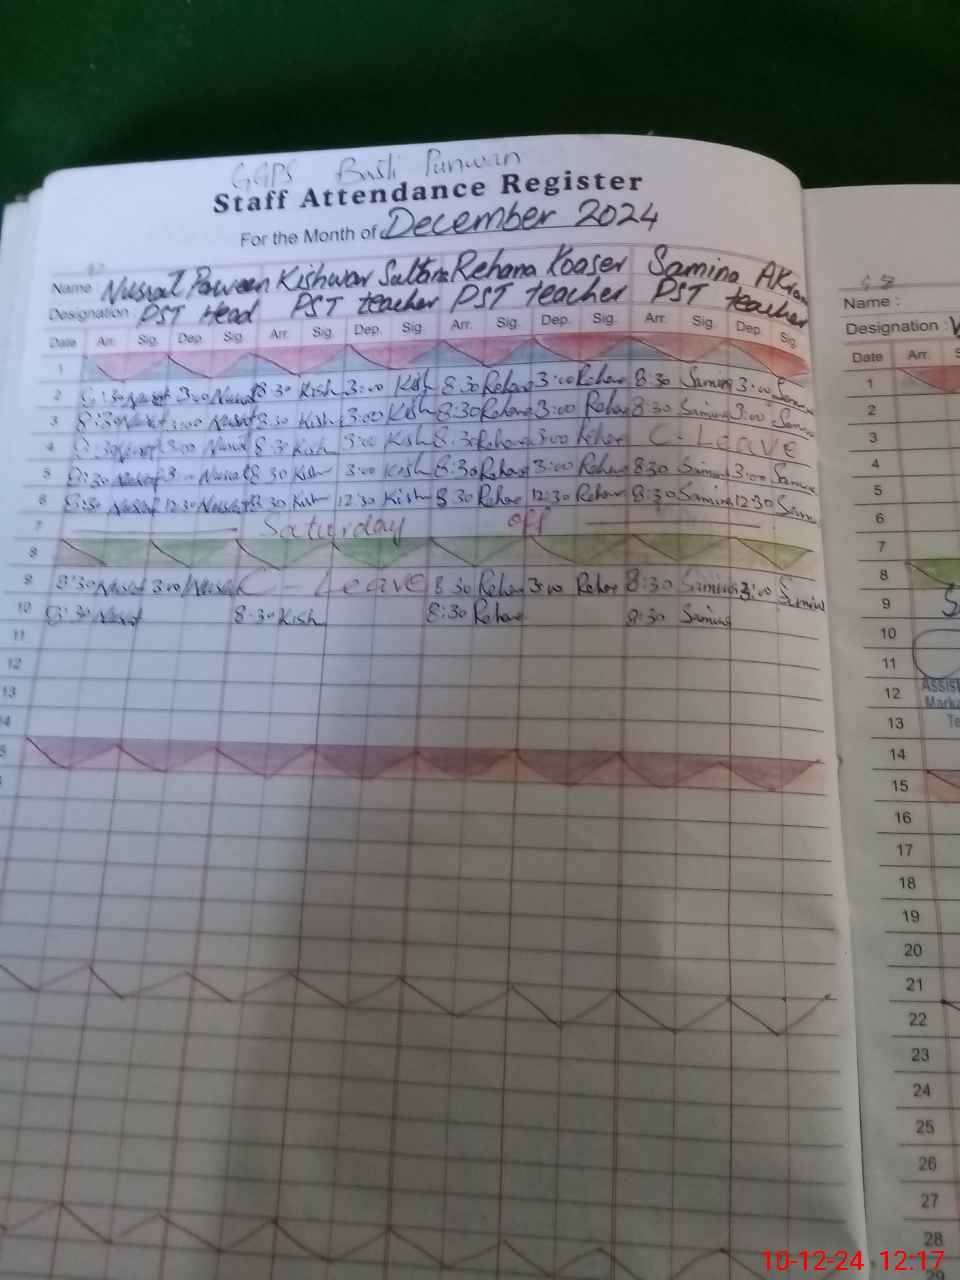 GGPS Basti Punwan
Staff Attendance Register
For the Month of December 2024
Name Nusrat Parveen Kishwar Sultana Rehana Koaser Samina AKram
Designation : PST Head PST teacher PST teacher PST teacher
Date Arr. Sig. Dep. Sig. Arr. Sig. Dep. Sig. Arr. Sig. Dep. Sig. Arr. Sig. Dep. Sig.
1
2 8:30 Nusrat 3:00 Nusrat 8:30 Kish 3:00 Kish 8:30 Rehana 3:00 Rehana 8:30 Samina 3:00 Samina
3 8:30 Nusrat 3:00 Nusrat 8:30 Kish 3:00 Kish 8:30 Rehana 3:00 Rehana 8:30 Samina 3:00 Samina
4 8:30 Nusrat 3:00 Nusrat 8:30 Kish 3:00 Kish 8:30 Rehana 3:00 Rehana C - Leave
5 8:30 Nusrat 3:00 Nusrat 8:30 Kish 3:00 Kish 8:30 Rehana 3:00 Rehana 8:30 Samina 3:00 Samina
6 8:30 Nusrat 12:30 Nusrat 8:30 Kish 12:30 Kish 8:30 Rehana 12:30 Rehana 8:30 Samina 12:30 Samina
7 Saturday off
8
9 8:30 Nusrat 3:00 Nusrat C - Leave 8:30 Rehana 3:00 Rehana 8:30 Samina 3:00 Samina
10 8:30 Nusrat 8:30 Kish 8:30 Rehana 8:30 Samina
11
12
13
Name :
Designation :
Date Arr.
1
2
3
4
5
6
7
8
9
10
11
12
13
14
15
16
17
18
19
20
21
22
23
24
25
26
27
28
29
Assist
Marka
Te
10-12-24 12:17